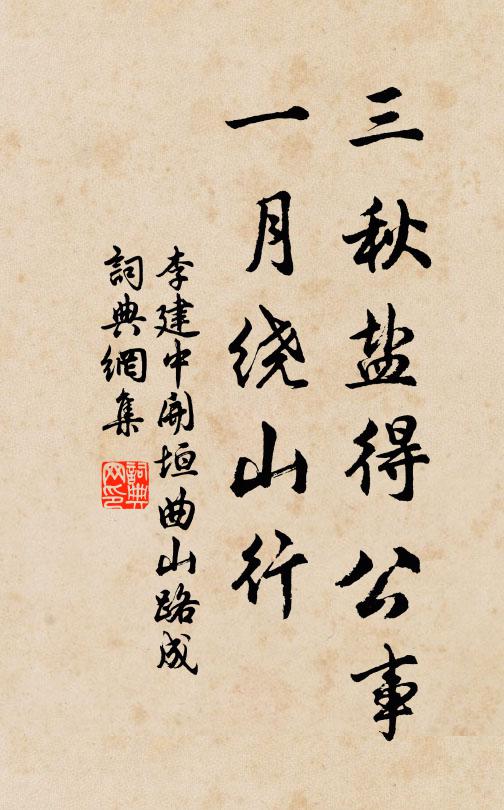 三秋盐得公事
一月绕山行
李建中開垣曲山路成
詞典網集
詞典
网印